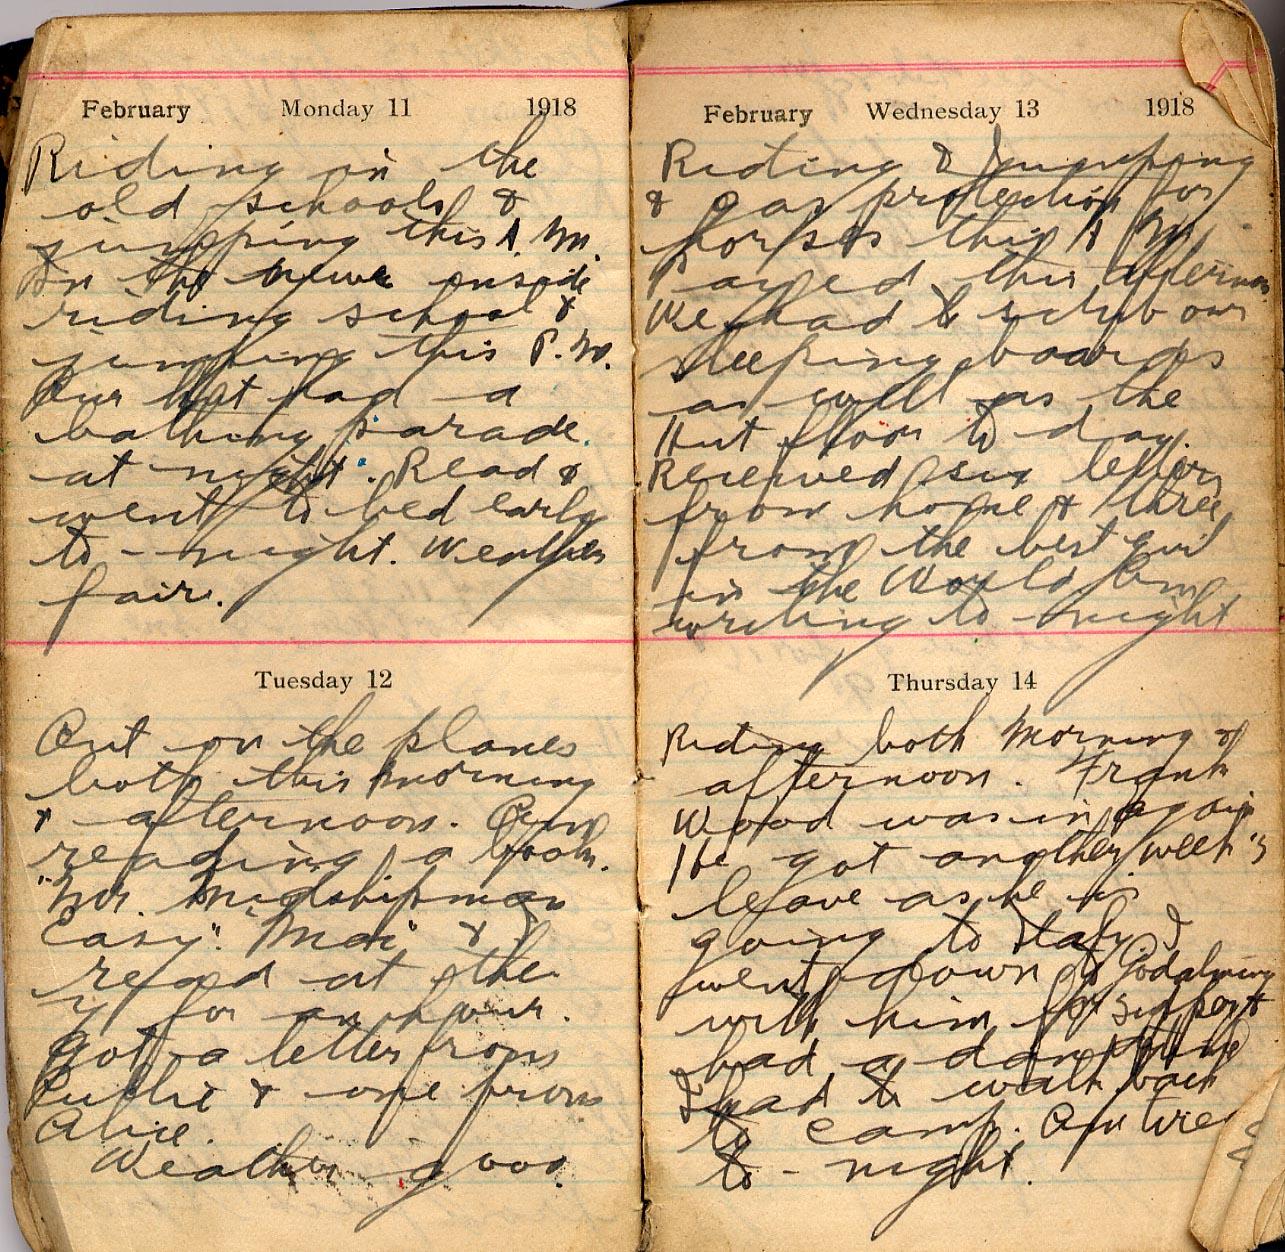 February Monday 11 1918
Riding in the
old schools &
jumping this A.M.
In the new inside
riding school &
jumping this P.M.
Our hut had a
bathing parade
at night. Read &
went to bed early
to-night. Weather
fair.
Tuesday 12
Out on the planes
both this morning
& afternoon. Am
reading a book.
"Mr. Midshipman
Easy". "Mac" & I
read at the
Y for an hour.
Got a letter from
& one from
Alice.
Weather good.
February Wednesday 13 1918
Riding & jumping
& gas protection for
horses this A.M.
Payed this afternoon
We had to scrub our
sleeping boards
as well as the
Hut floor to-day.
Received six letters
from home & three
from the best girl
in the World Am
writing to-night
Thursday 14
Riding both morning &
afternoon. Frank
Wood was in again
He got another week's
leave as he is
going to Italy I
went down to Godalming
with him for supper
had a time
& had to walk back
to camp. Am tired
to-night.